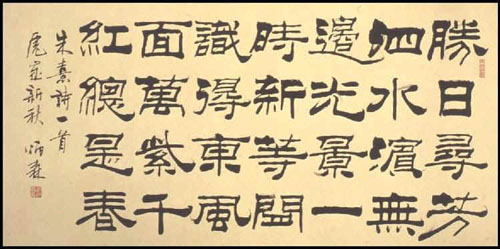 勝日尋芳
泗水濱無
邊光景一
時新等閒
識得東風
面萬紫千
紅總是春
朱熹詩一首
虎歲新秋 炳森